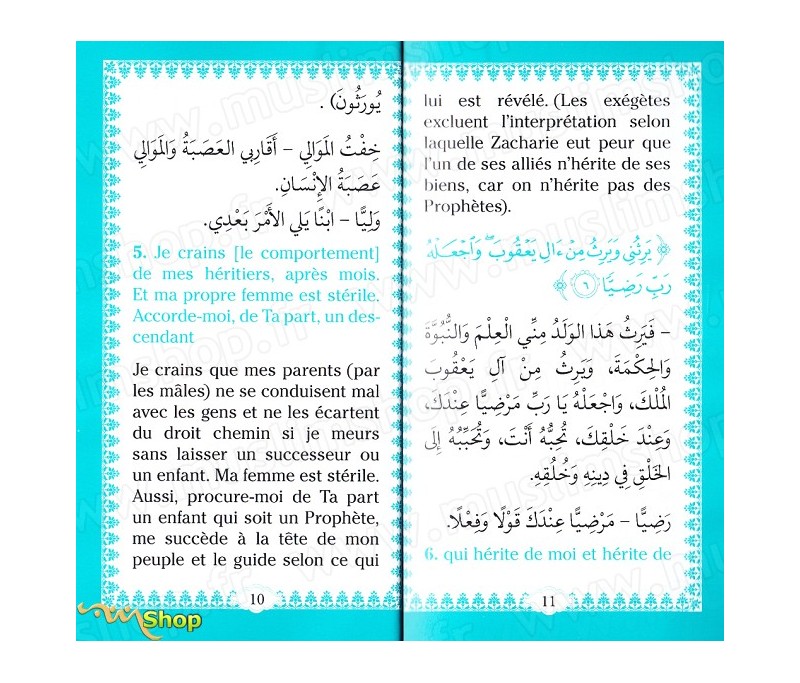 يُورَثُونَ) .
خِفْتُ المَوَالِي – أَقَارِبِي العَصَبَةُ وَالمَوَالِي
عَصَبَةُ الإِنْسَانِ.
وَلِيًّا – ابْنًا يَلِي الأَمْرَ بَعْدِي.
5. Je crains [le comportement]
de mes héritiers, après mois.
Et ma propre femme est stérile.
Accorde-moi, de Ta part, un des-
cendant
Je crains que mes parents (par
les mâles) ne se conduisent mal
avec les gens et ne les écartent
du droit chemin si je meurs
sans laisser un successeur ou
un enfant. Ma femme est stérile.
Aussi, procure-moi de Ta part
un enfant qui soit un Prophète,
me succède à la tête de mon
peuple et le guide selon ce qui
10
lui est révélé. (Les exégètes
excluent l'interprétation selon
laquelle Zacharie eut peur que
l'un de ses alliés n'hérite de ses
biens, car on n'hérite pas des
Prophètes).
﴿ يَرِثُنِي وَيَرِثُ مِنْ ءَالِ يَعْقُوبَ ۖ وَٱجْعَلْهُ
رَبِّ رَضِيًّا ٦ ﴾
– فَيَرِثُ هَذا الوَلَدُ مِنِّي الْعِلْمَ وَالنُّبُوَّةَ
وَالحِكْمَةَ، وَيَرِثُ مِنْ آلِ يَعْقُوبَ
المُلْكَ، وَاجْعَلْهُ يَا رَبِّ مَرْضِيًّا عِنْدَكَ،
وَعِنْدَ خَلْقِكَ، تُحِبُّهُ أَنْتَ، وَتُحَبِّبُهُ إِلَى
الخَلْقِ فِي دِينِهِ وَخُلُقِهِ.
رَضِيًّا – مَرْضِيًّا عِنْدَكَ قَوْلًا وَفِعْلًا.
6. qui hérite de moi et hérite de
11
Shop
www.muslimshop.fr